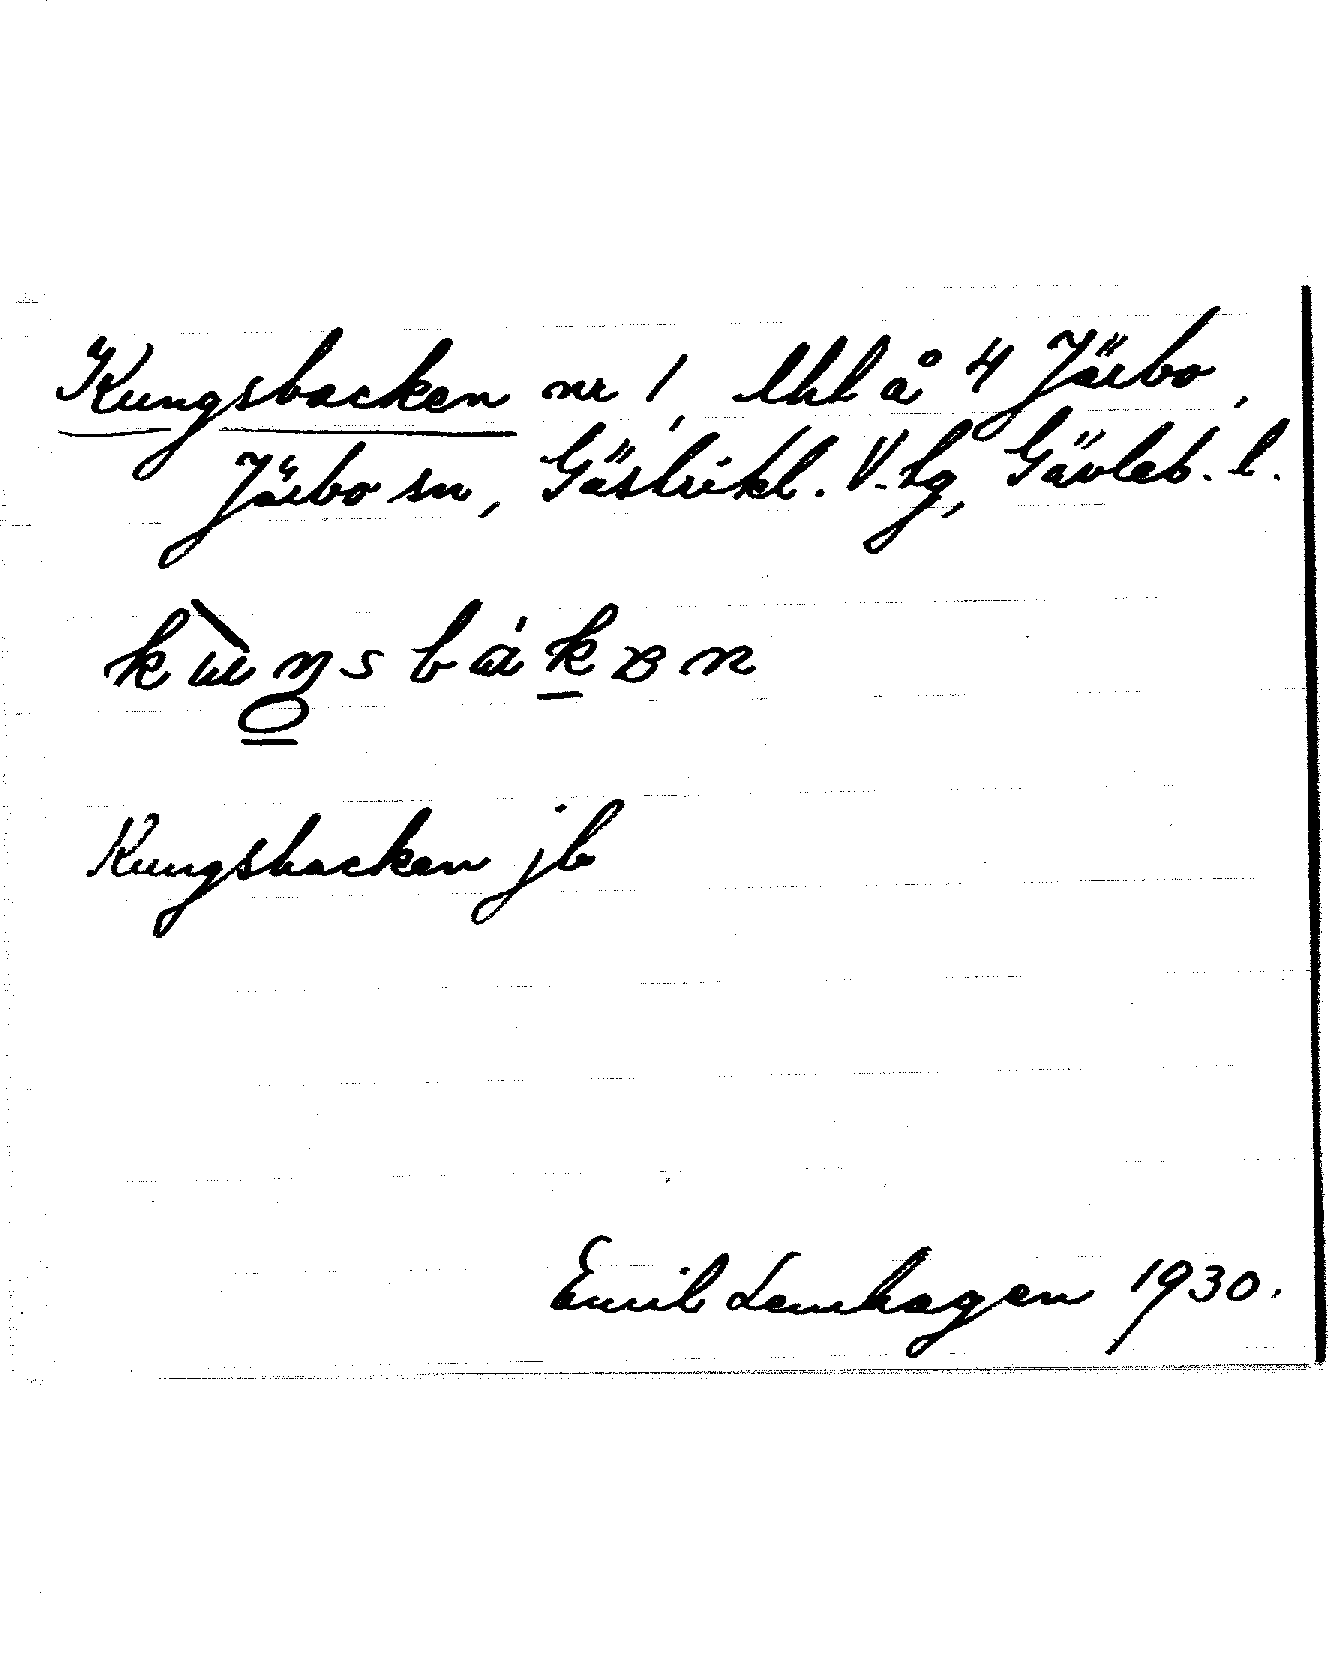 Kungsbacken nr 1, lhl å 4 Järbo,
Järbo sn, Gästrikl. V. tg, Gävleb. l.
kùŋsbákən
Kungsbacken jb
Emil Lemhagen 1930.